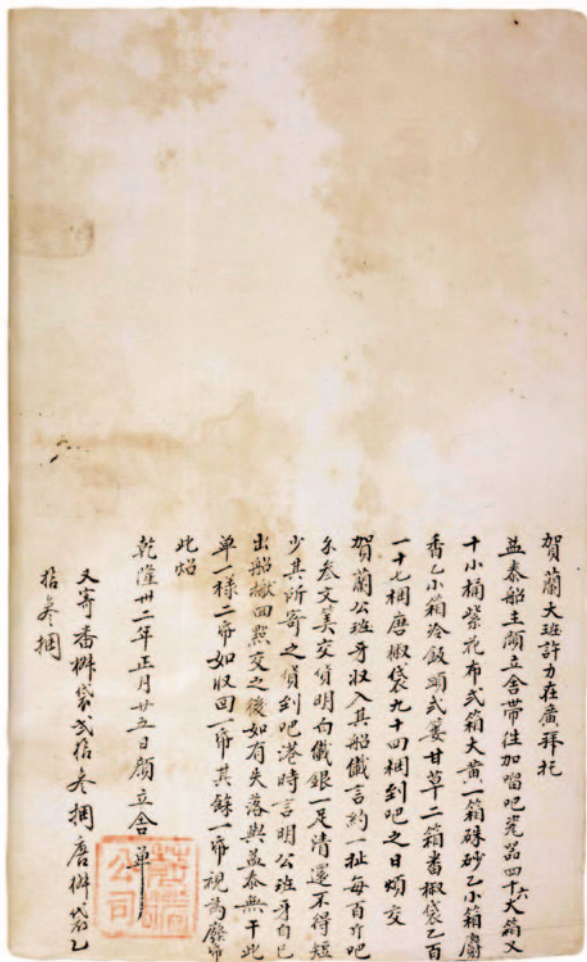 賀蘭大班許力在廣拜托
益泰船主顏立舍帶往加𠺕吧瓷器四十六大箱又
十小桶紫花布弍箱大黃一箱硃砂乙小箱麝
香乙小箱冷飯頭弍簍甘草二箱番椒袋乙百
一十七梱唐椒袋九十四梱到吧之日煩交
賀蘭公班牙收入其船儎言約一扯每百斤吧
叁文筭交貨明白儎銀一足清還不得短
少其所寄之貨到吧港時言明公班牙自己
出船撤回點交之後如有失落與益泰無干此
单一樣二帋如收回一帋其餘一帋視為廢帋
此炤
乾隆卅二年正月廿五日顏立舍单
又寄番椒袋弍拾叁捆唐椒袋乙
拾叁捆
公司